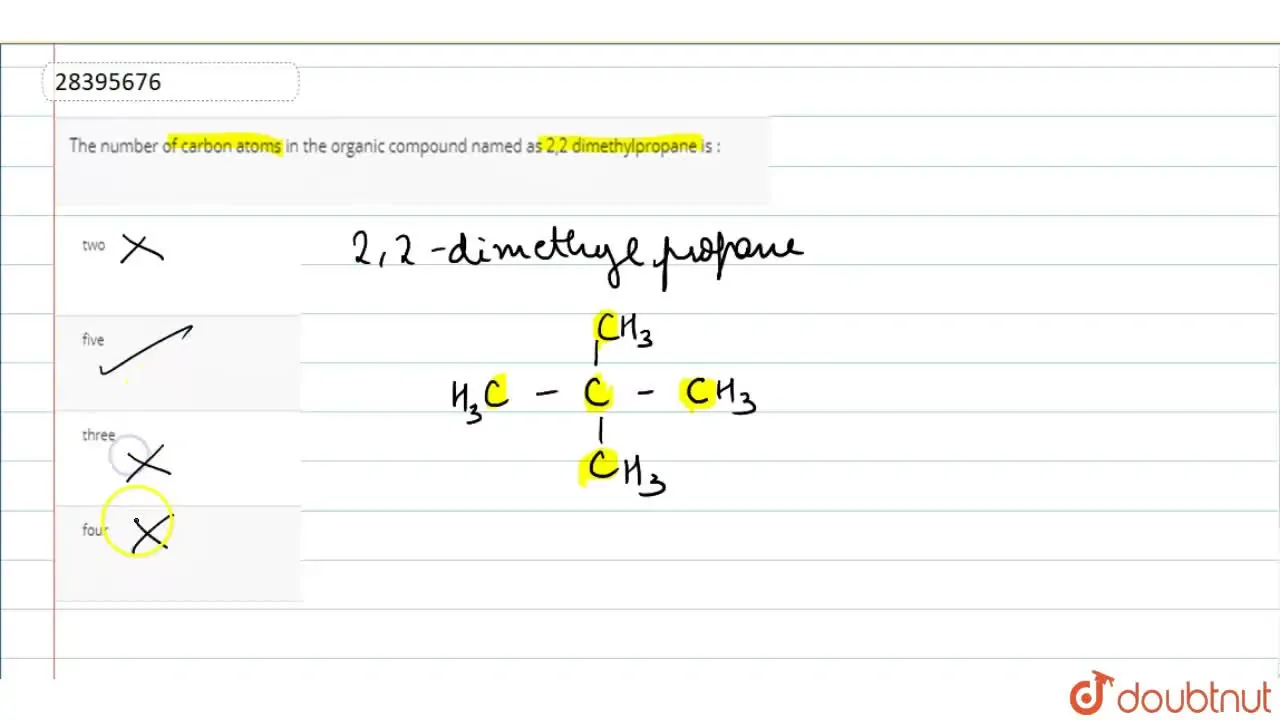 28395676
The number of carbon atoms in the organic compound named as 2,2 dimethylpropane is :
two
2,2-dimethyl propane
CH3
five
H3C - C - CH3
three
CH3
four
doubtnut